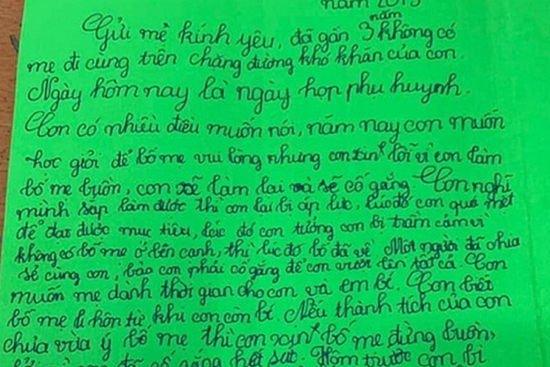 năm 2019
Gửi mẹ kính yêu, đã gần 3 năm không có
mẹ đi cùng trên chặng đường khó khăn của con.
Ngày hôm nay là ngày họp phụ huynh.
Con có nhiều điều muốn nói, năm nay con muốn
học giỏi để bố mẹ vui lòng nhưng con xin lỗi vì con làm
bố mẹ buồn, con sẽ làm lại và sẽ cố gắng. Con nghĩ
mình sắp làm được thì con lại bị áp lực, lúc đó con quá mệt
để đạt được mục tiêu, lúc đó con tưởng con bị trầm cảm vì
không có bố mẹ ở bên cạnh, thì lúc đó bố đã về. Một người đã chia
sẻ cùng con, bảo con phải cố gắng để con vượt lên tất cả. Con
muốn mẹ dành thời gian cho con và em bé. Con biết
bố mẹ li hôn từ khi con còn bé. Nếu thành tích của con
chưa vừa ý bố mẹ thì con xin bố mẹ đừng buồn,
con đã cố gắng hết sức. Hôm trước con bị